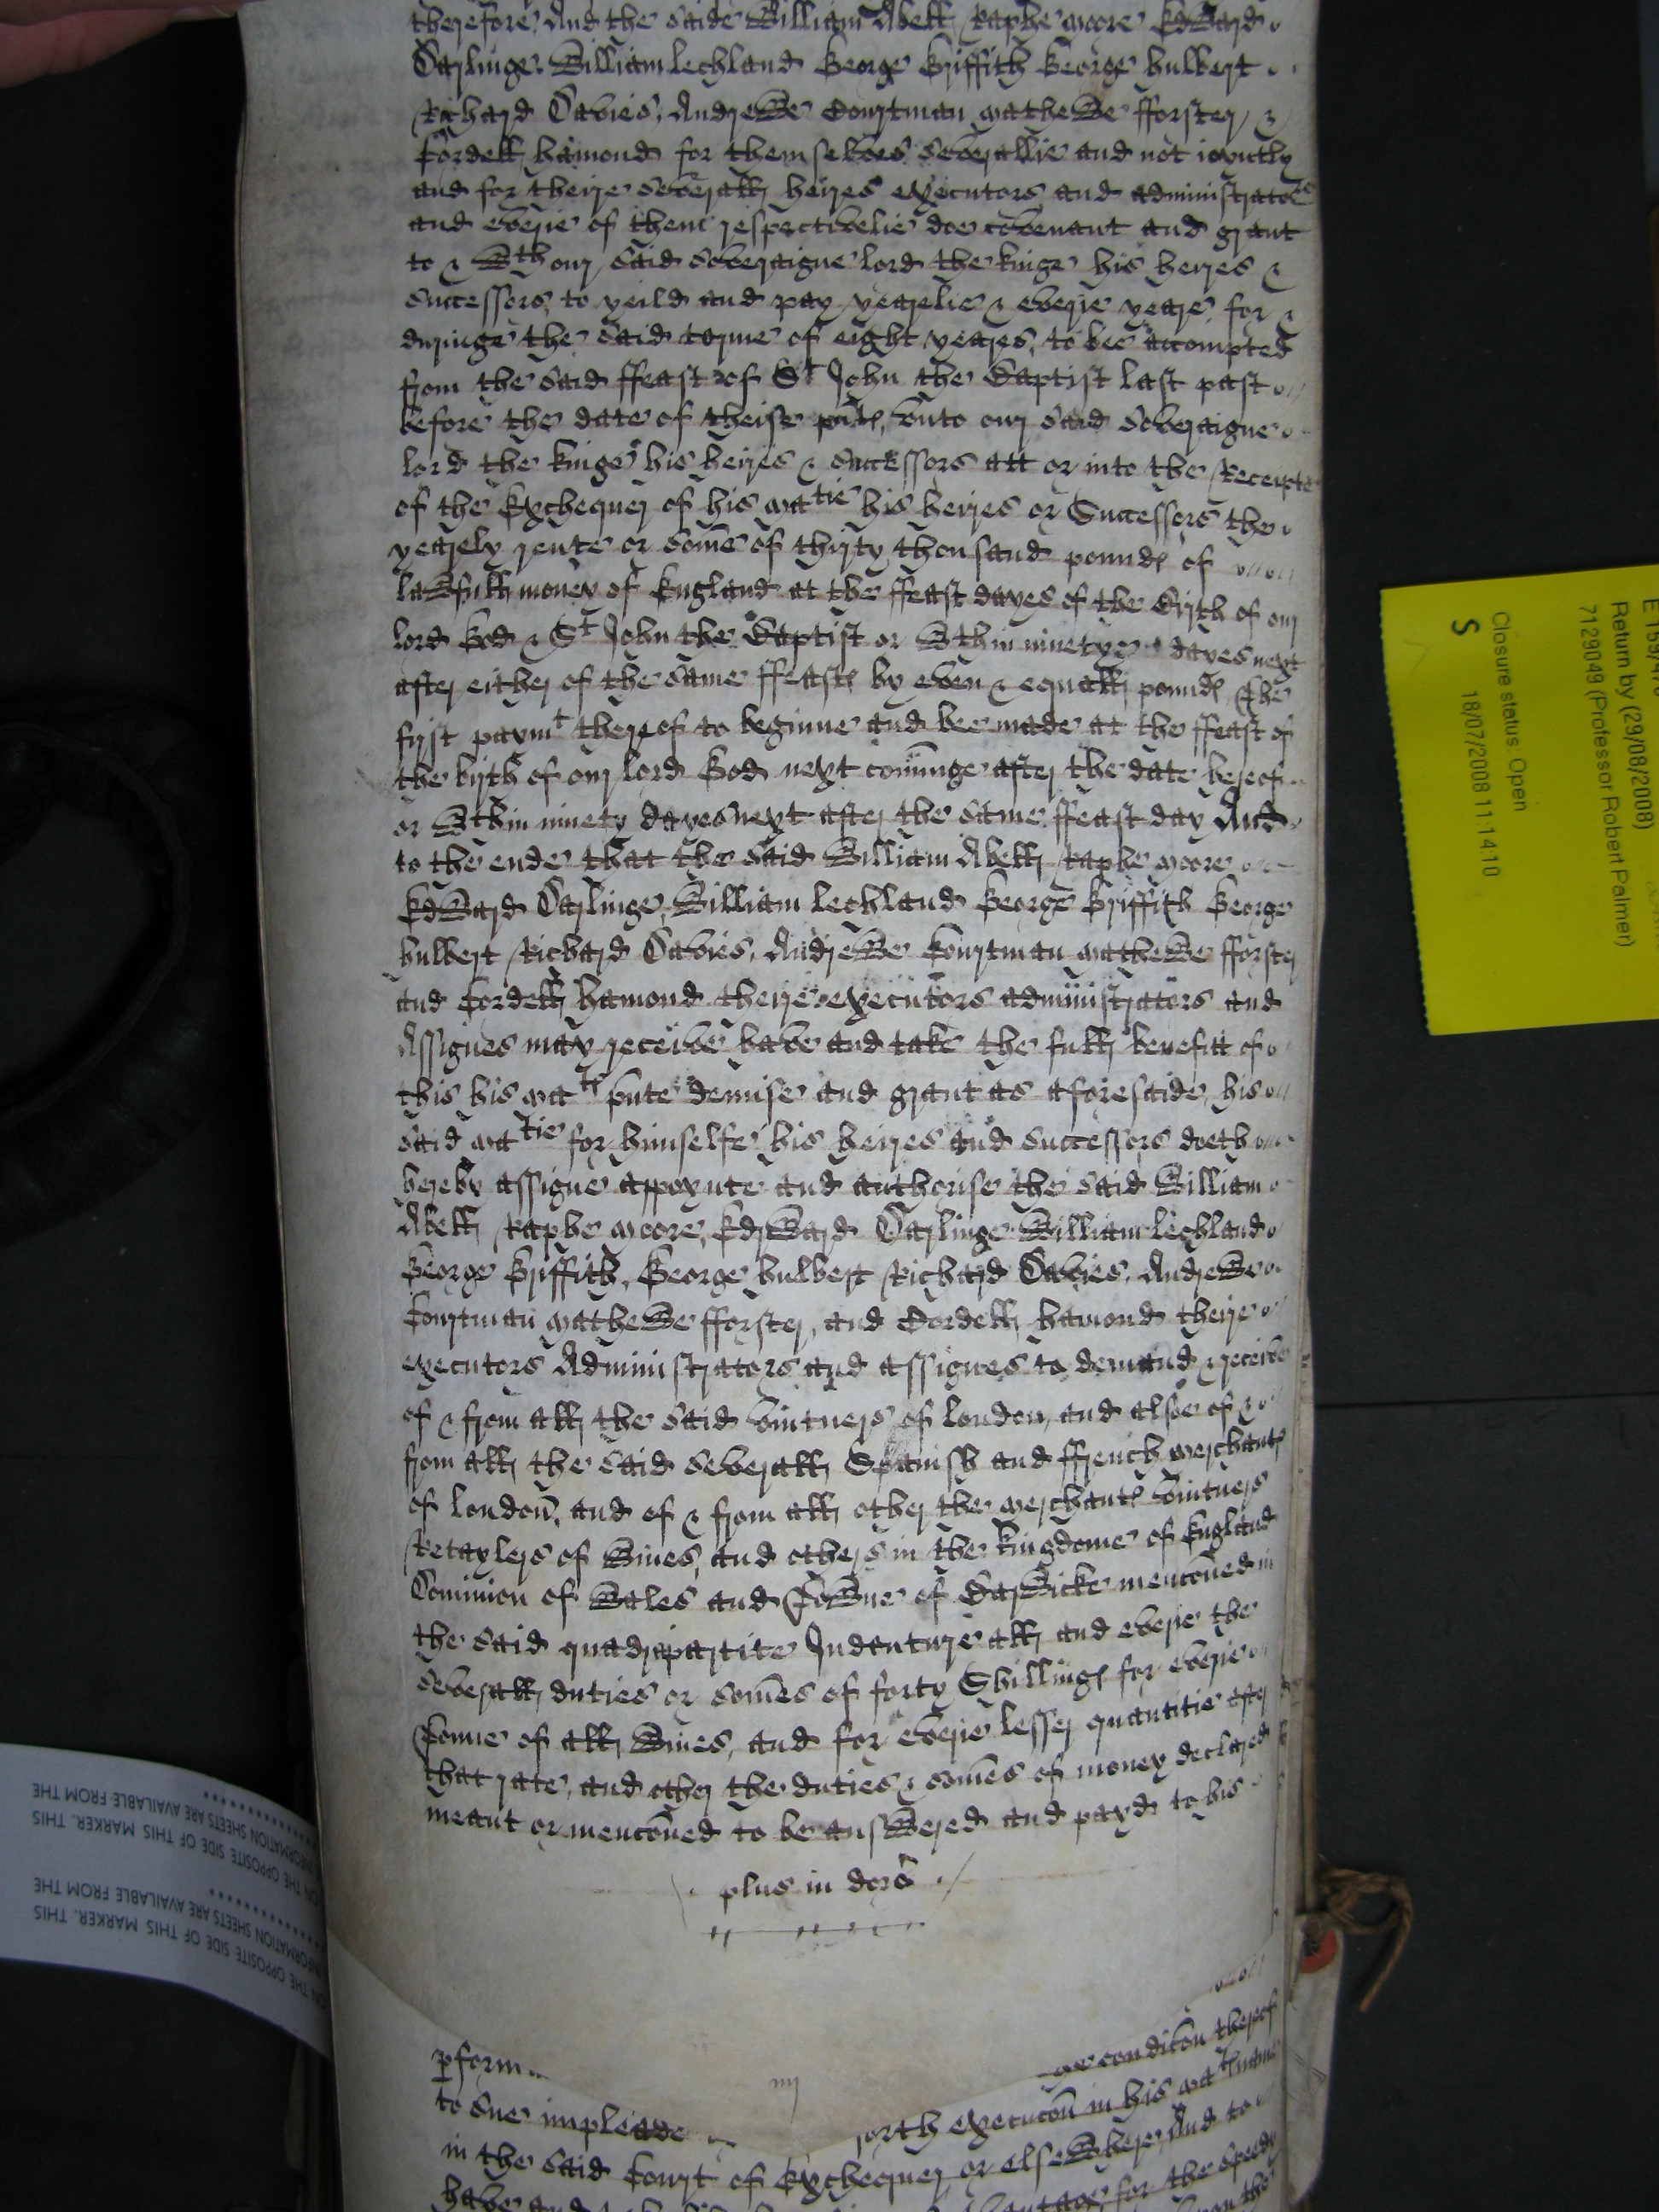 therefore And the saide William Abell, Raphe Moore Edward
Darlinge William Lechland George Griffith George hulbert
Richard Davies, Andrewe Courtman Mathewe fforster &
Cordell hamond for themselves severallie and not ioyntly
and for theire severall heires executors and administrators
and everie of them respectivelie doe covenant and grant
to & wth our said Soveraigne lord the kinge his heires &
successors to yeild and pay yearelie & everie yeare for &
duringe the said terme of eight yeares, to bee accompted
from the said ffeast of St John the Baptist last past
before the date of theise pnts, vnto our said Soveraigne
lord the kinge his heires & successors att or into the Receipte
of the Exchequer of his Matie his heires or Successors the
yearely rente or some of thirty thousand pounds of
lawfull money of England at the ffeast dayes of the Birth of our
lord God & St John the Baptist or wthin ninetye dayes next
after either of the same ffeasts by even & equall pounds The
first paymt thereof to beginne and bee made at the ffeast of
the birth of our lord God next cominge after the date hereof
or wthin ninety dayes next after the same ffeast day And
to the ende that the said William Abell Raphe Moore
Edward Darlinge, William Lechland George Griffith George
hulbert Richard Davies, Andrewe Courtman Mathewe fforster
and Cordell hamond theire executors administrators and
Assignes may receive have and take the full benefitt of
this his Mats pnte demise and grant as aforesaide, his
said Matie for himselfe his heires and successors doeth
hereby assigne appoynte and authorise the said William
Abell Raphe Moore, Edrward Darlinge William Lechland
George Griffith, George hulbert Richard Davies, Andrewe
Courtman Mathewe fforster, and Cordell hamond theire
executors Administrators and assignes to demand & receive
of & from all the said vintners of london, and alsoe of &
from all the said severall Spanish and ffrench Merchants
of london, and of & from all other the Merchants vintners
Retaylers of Wines, and others in the kingdome of England
Dominion of Wales and Towne of Barwicke menconed in
the said quadripartite Indenture all and everie the
severall duties or somes of forty Shillings for everie
Tonne of all Wines, and for everie lesser quantitie after
that rate, and other the duties & somes of money declared
meant or menconed to be answered and payd to his
plus in dors
iiij
pform condicon thereof
to sue impleade forth execucon in his Mats name
in the said Court of Exchequer or elsewhere, And to
have and for the speedy
E159/
Return by (29/08/2008)
7129049 (Professor Robert Palmer)
Closure status: Open
18/07/2008 11:14:10
S
ON THE OPPOSITE SIDE OF THIS MARKER. THIS
INFORMATION SHEETS ARE AVAILABLE FROM THE
ON THE OPPOSITE SIDE OF THIS MARKER. THIS
INFORMATION SHEETS ARE AVAILABLE FROM THE